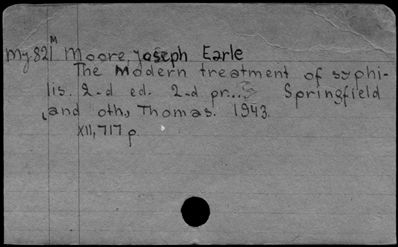 My821M Moore, Joseph Earle
The Modern treatment of syphi-
lis. 2-d ed. 2-d pr... Springfield
and oth., Thomas. 1943.
XII, 717 p.